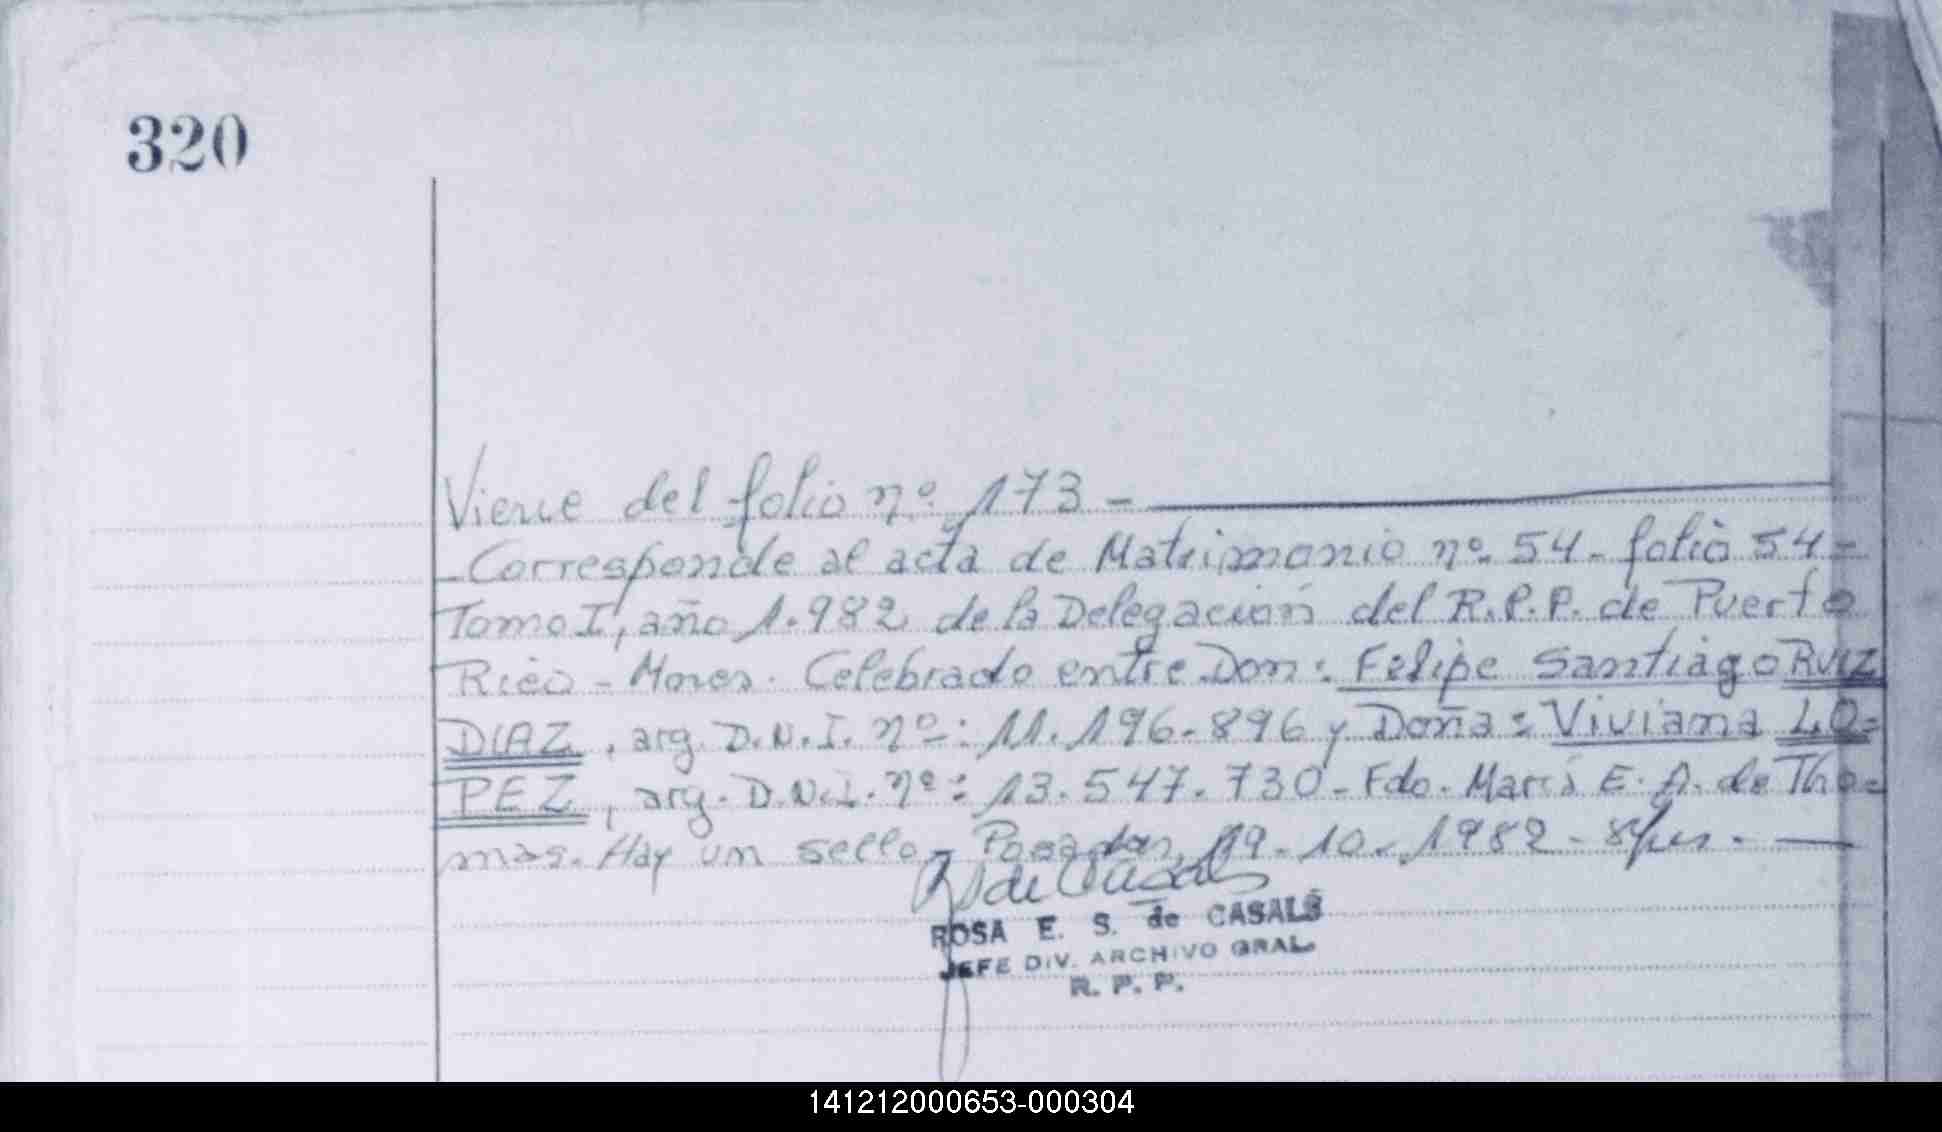 320
Viene del folio nº 173 -
- Corresponde al acta de Matrimonio nº 54 - folio 54 -
Tomo I, año 1.982 de la Delegación del R.P.P. de Puerto
Rico - Mnes. Celebrado entre Don: Felipe Santiago RUIZ
DIAZ, arg. D.N.I. nº: 11.196.896 y Doña: Viviana LO=
PEZ, arg. D.N.I. nº: 13.547.730 - Fdo. María E. A. de Tho=
mas. Hay un sello - Posadas, 19-10-1982 -
ROSA E. S. de CASALS
JEFE DIV. ARCHIVO GRAL.
R. P. P.
141212000653-000304